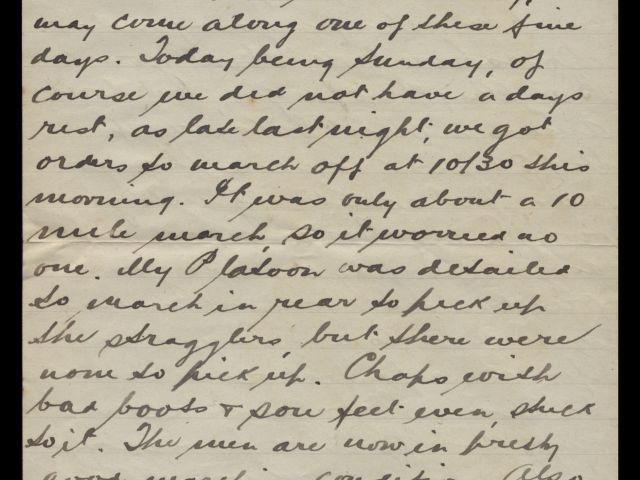 may come along one of these fine
days. Today being Sunday, of
course we did not have a days
rest, as late last night, we got
orders to march off at 10/30 this
morning. It was only about a 10
mile march, so it worried no
one. My Platoon was detailed
to march in rear to pick up
the stragglers, but there were
none to pick up. Chaps with
bad boots & sore feet even, stuck
to it. The men are now in pretty
good marching condition. Also